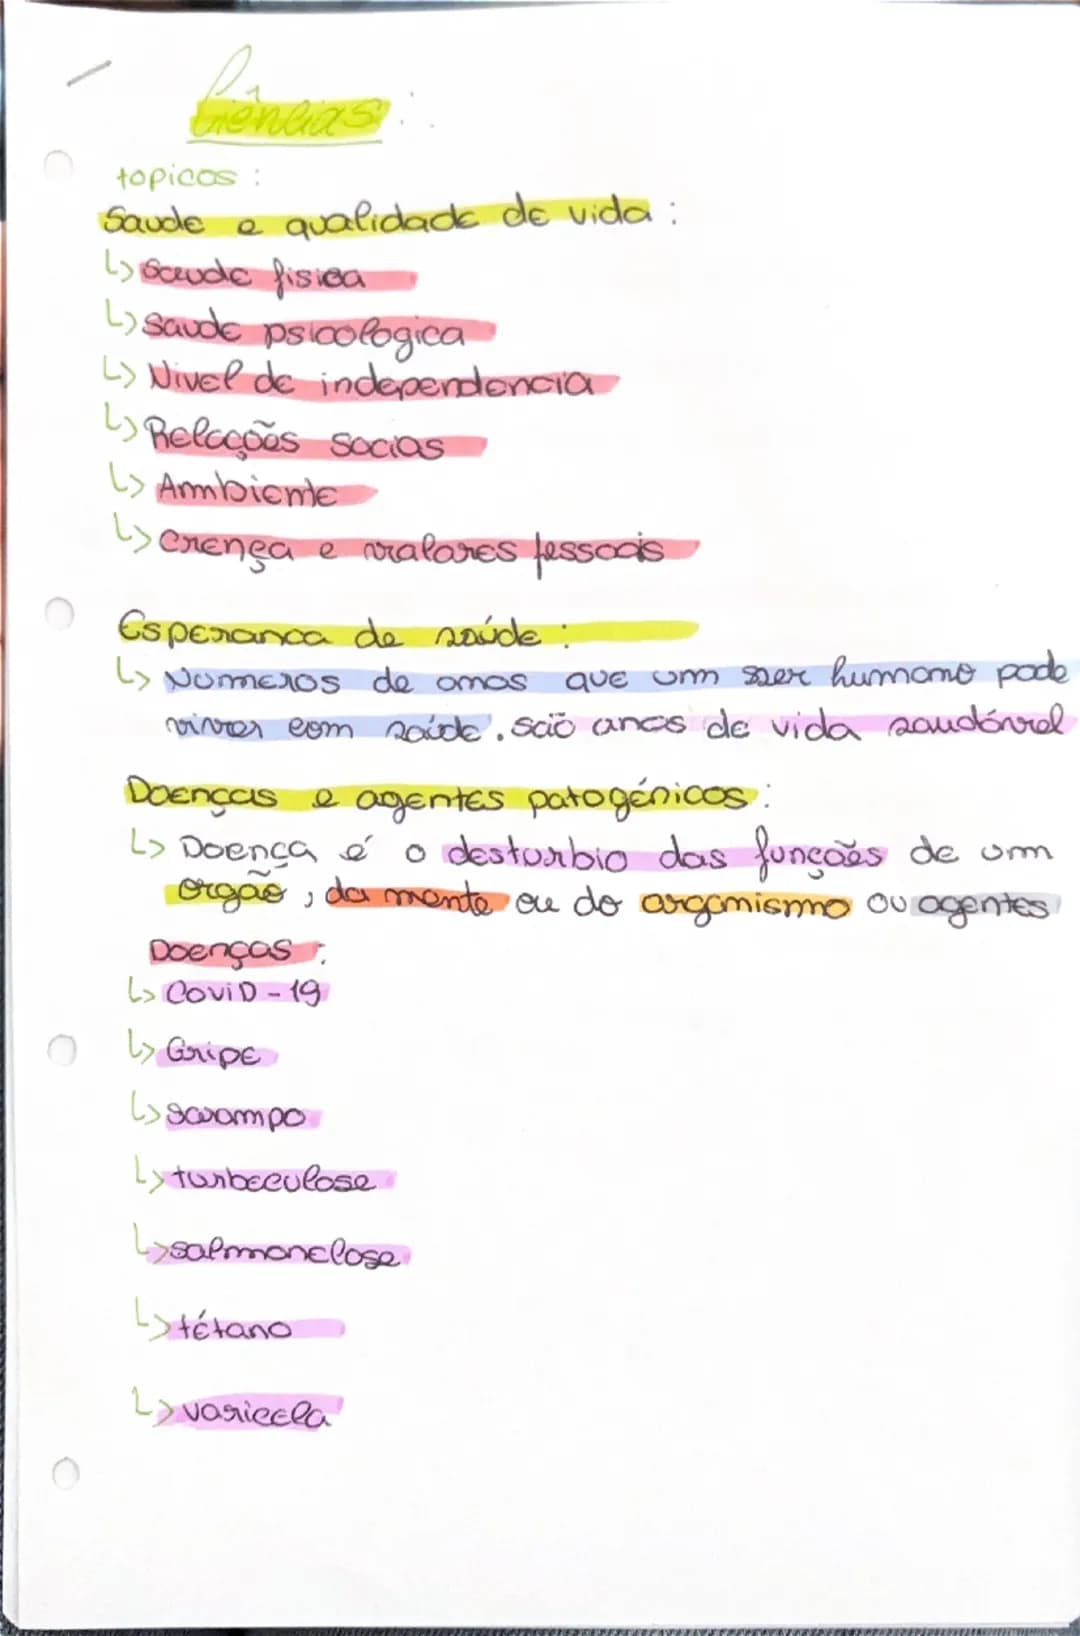 Ciências:
topicos:
Saude e qualidade de vida:
↳ Saude fisica
↳ Saude psicologica
↳ Nivel de independencia
↳ Relações socias
↳ Ambiente
↳ Crença e valores pessoais
Esperanca de saúde:
↳ Numeros de anos que um ser humano pode
viver com saúde. são anos de vida saudável
Doenças e agentes patogénicos:
↳ Doença é o desturbio das funções de um
orgão, da mente ou do organismo ou agentes
Doenças:
↳ Covid-19
↳ Gripe
↳ sarampo
↳ turbeculose
↳ salmonelose
↳ tétano
↳ varicela